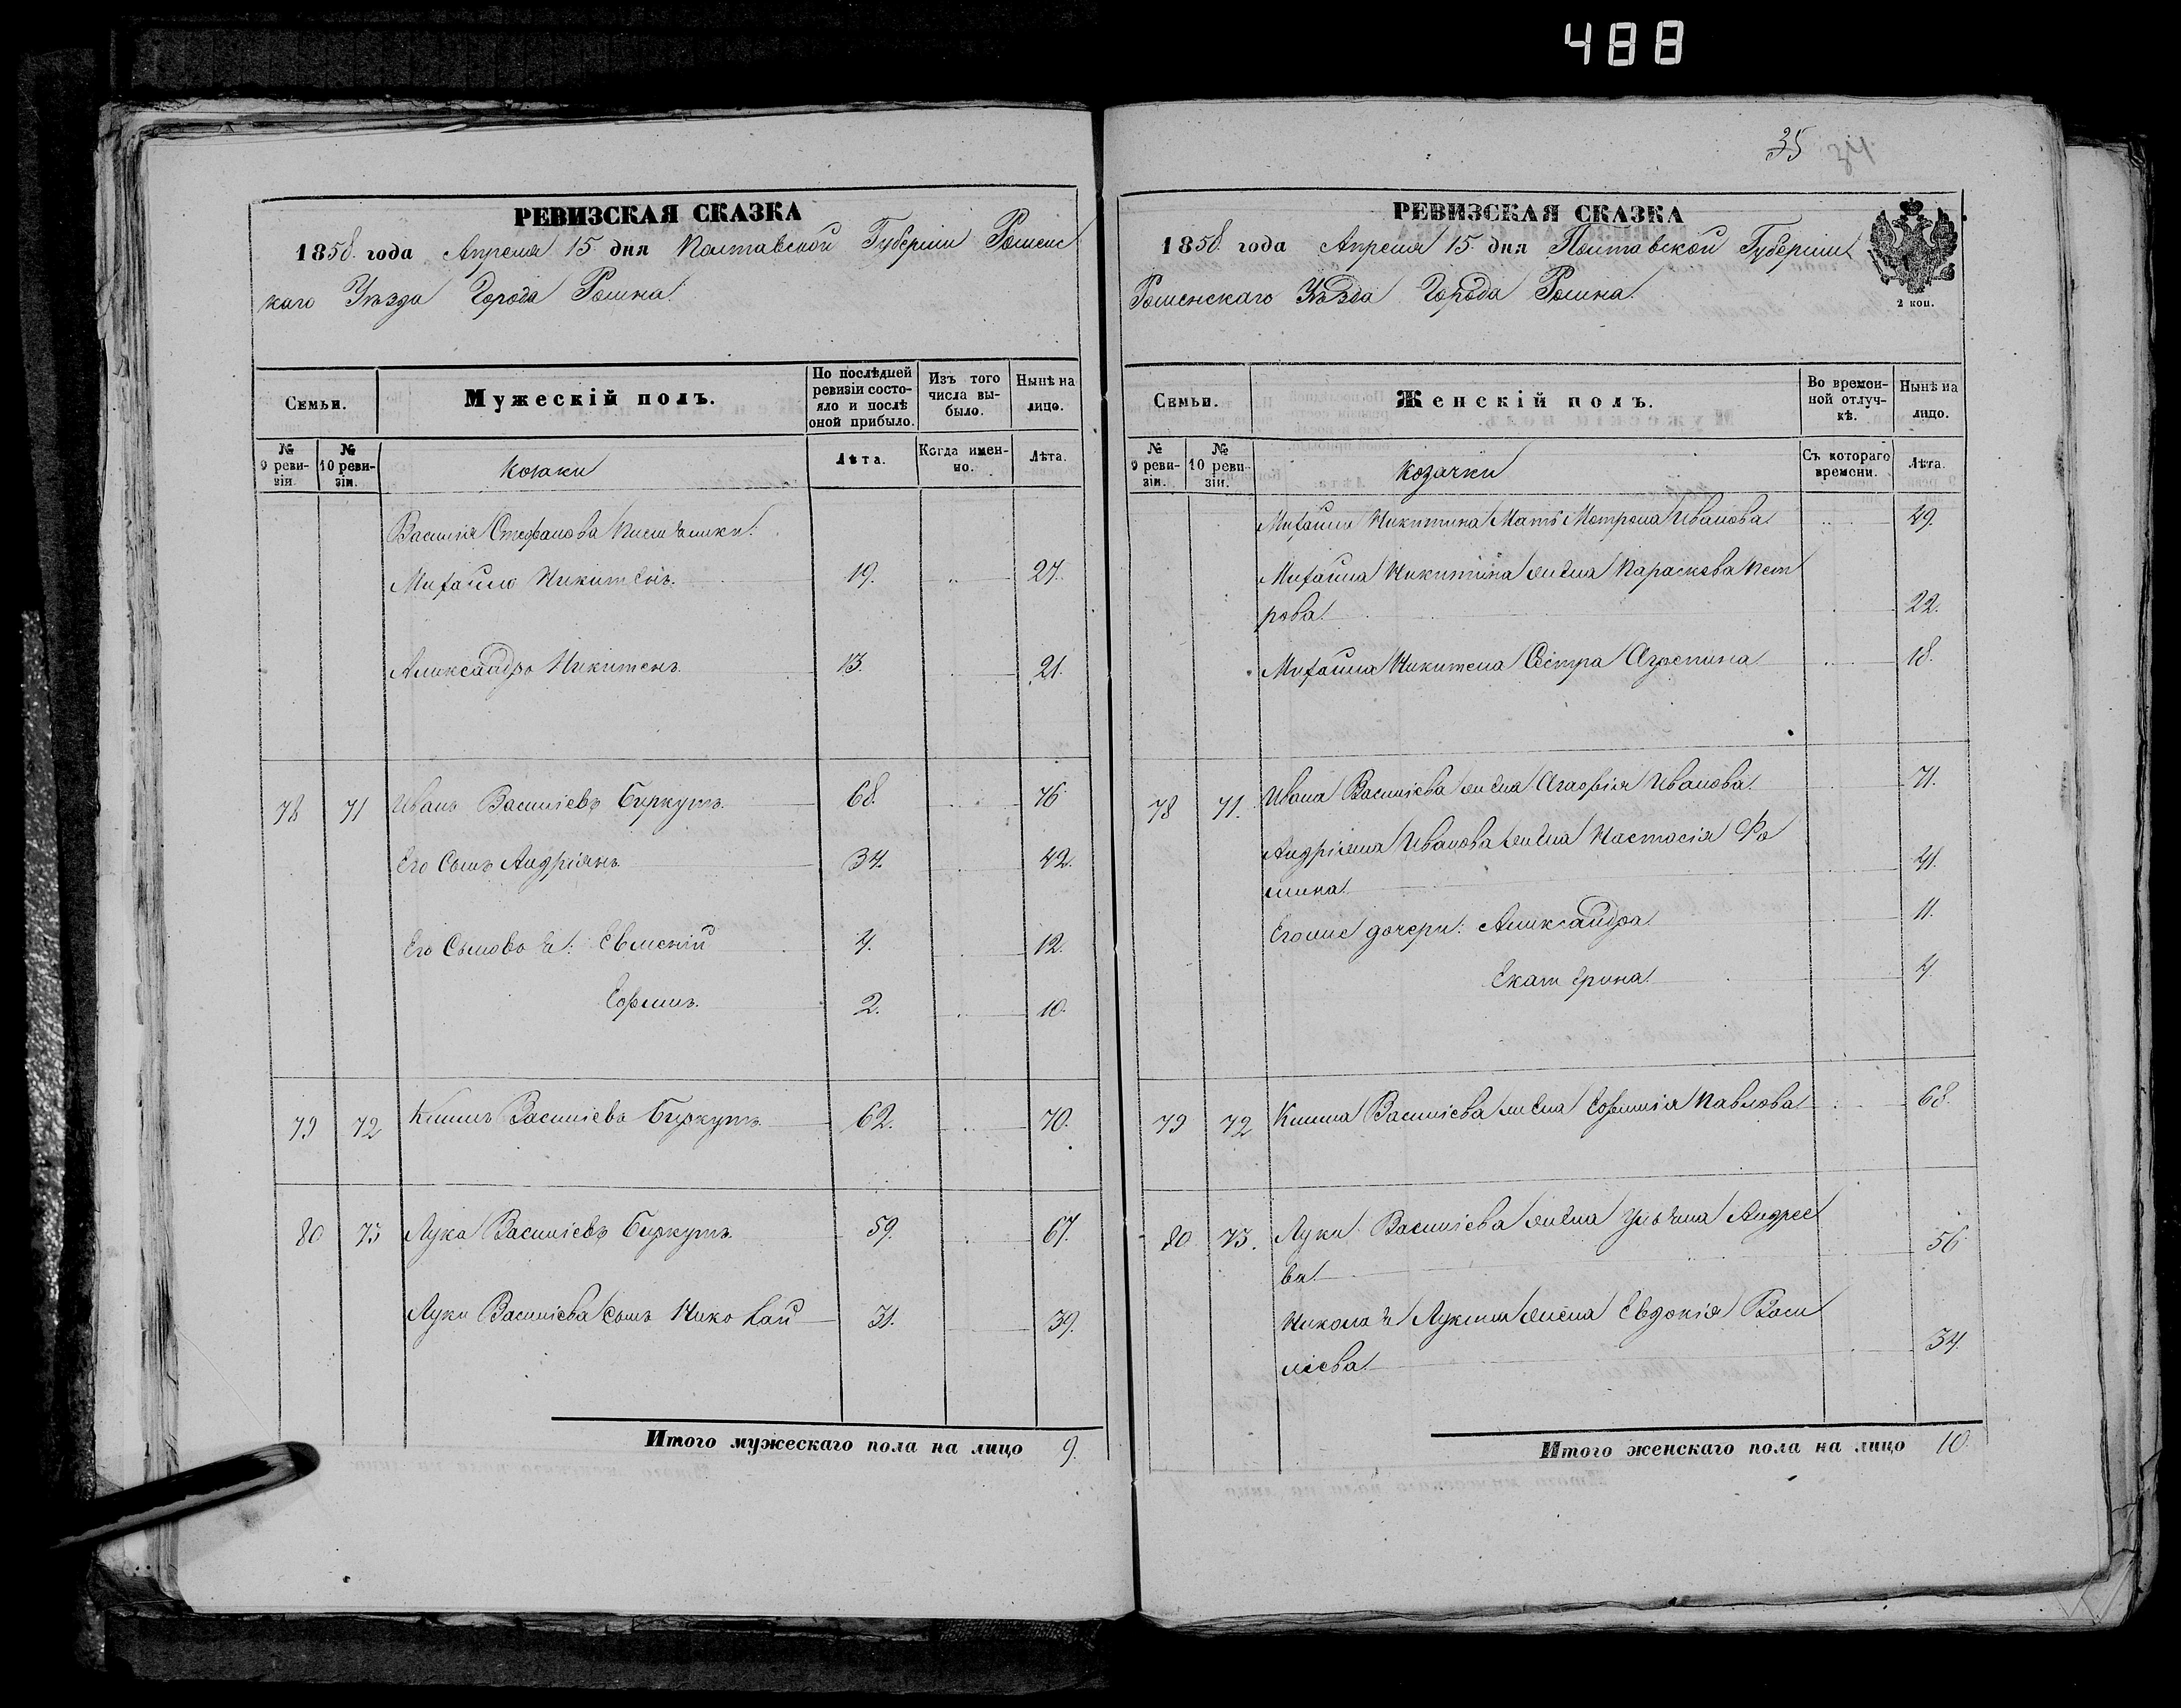 488
РЕВИЗСКАЯ СКАЗКА
1858. года Апреля 15. дня Полтавской Губерніи Роменс
каго Уѣзда Города Ромна.
Семьи.
Мужескій полъ.
По послѣдней ревизіи состояло и послѣ оной прибыло.
Изъ того числа выбыло.
Нынѣ на лицо.
№ 9 ревизіи.
№ 10 ревизіи.
Козаки
Лѣта.
Когда именно.
Лѣта.
Василія Стефанова
Михайло Никитенъ. 19. 27.
Александръ Никитенъ. 13. 21.
78 71 Иванъ Василіевъ Биркутъ. 68. 76
Его Сынъ Андріянъ 34. 42.
Его Сыновья: Евменій 4. 12.
Ефимъ. 2. 10.
79 72 Климъ Василіевъ Биркутъ 62. 70.
80 73 Лука Василіевъ Биркутъ. 59. 67.
Луки Василіева Сынъ Николай 31. 39.
Итого мужескаго пола на лицо 9.
35 34
РЕВИЗСКАЯ СКАЗКА
1858. года Апреля 15. дня Полтавской Губерніи
Роменскаго Уѣзда Города Ромна.
2 коп.
Семьи.
Женскій полъ.
Во временной отлучкѣ.
Нынѣ на лицо.
№ 9 ревизіи.
№ 10 ревизіи.
Козачки
Съ котораго времени.
Лѣта.
Михайла Никитина Мать Мотрона Иванова 49.
Михайла Никитина жена Параскева Пет
рова. 22.
Михайла Никитена Сестра Агрепина 18.
78 71. Ивана Василіева жена Агафія Иванова. 71.
Андріяна Иванова жена Настасія Фо
мина. 41.
Егоже дочери: Александра 11.
Екатерина. 4.
79 72 Клима Василіева жена Ефимія Павлова 68.
80 73. Луки Василіева жена Ульяна Андрее
ва. 56
Николая Лукина жена Евдокія Васи
ліева. 34.
Итого женскаго пола на лицо 10.